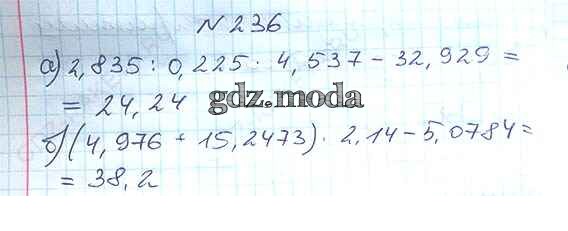 N 236
а) 2,835 : 0,225 · 4,537 - 32,929 =
= 24,24
gdz.moda
б) (4,976 + 15,2473) · 2,14 - 5,0784 =
= 38,2